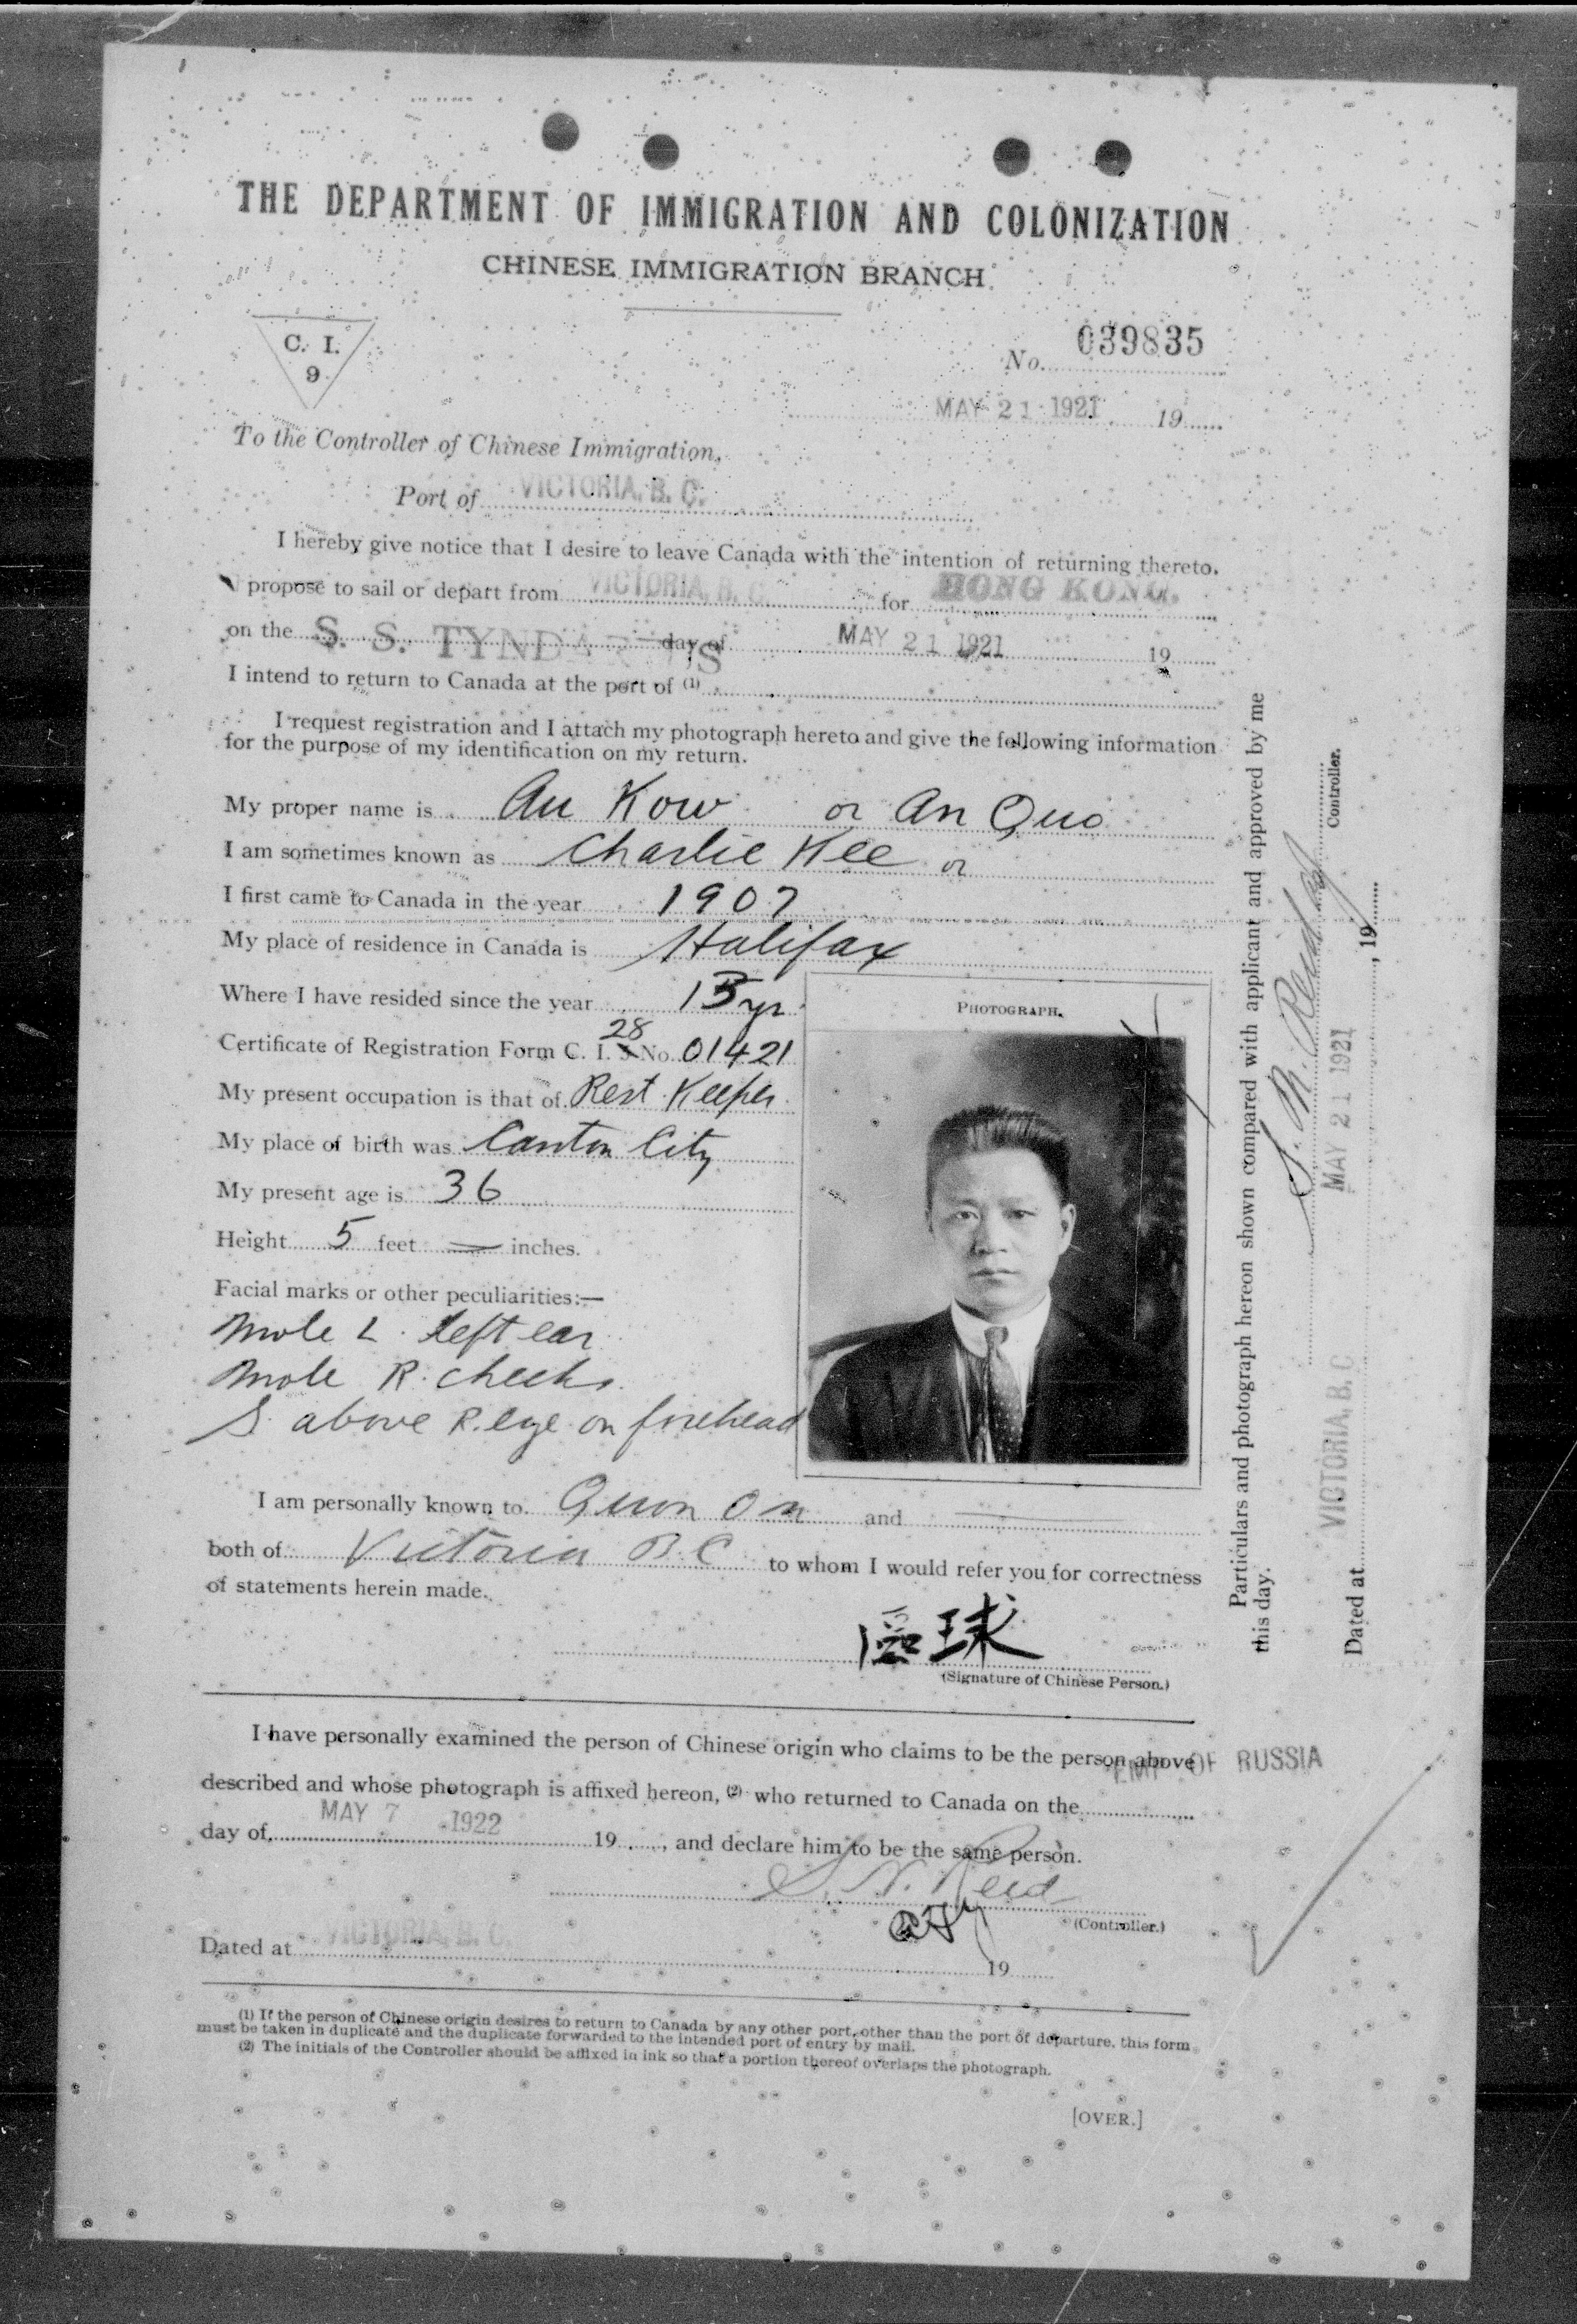 THE DEPARTMENT OF IMMIGRATION AND COLONIZATION
CHINESE IMMIGRATION BRANCH
C. I.
9
No. 039835
MAY 21 1921 19
To the Controller of Chinese Immigration,
Port of VICTORIA, B. C.
I hereby give notice that I desire to leave Canada with the intention of returning thereto.
I propose to sail or depart from VICTORIA, B. C. for HONG KONG.
on the S. S. TYNDAREUS day of MAY 21 1921 19
I intend to return to Canada at the port of (1)
I request registration and I attach my photograph hereto and give the following information
for the purpose of my identification on my return.
My proper name is Au Kow or An Quo
I am sometimes known as Charlie Kee or
I first came to Canada in the year 1907
My place of residence in Canada is Halifax
Where I have resided since the year 13 yr
Certificate of Registration Form C. I. 28 No. 01421
My present occupation is that of Rest Keeper
My place of birth was Canton City
My present age is 36
Height 5 feet — inches.
Facial marks or other peculiarities:—
Mole L. left ear
Mole R. cheek
S. above R. eye on forehead
PHOTOGRAPH.
I am personally known to Quon On and
both of Victoria B.C to whom I would refer you for correctness
of statements herein made.
區球
(Signature of Chinese Person.)
I have personally examined the person of Chinese origin who claims to be the person above
EMP OF RUSSIA
described and whose photograph is affixed hereon, (2) who returned to Canada on the
day of MAY 7 1922 19, and declare him to be the same person.
S. N. Reid
(Controller.)
Dated at VICTORIA, B. C. 19
(1) If the person of Chinese origin desires to return to Canada by any other port, other than the port of departure, this form
must be taken in duplicate and the duplicate forwarded to the intended port of entry by mail.
(2) The initials of the Controller should be affixed in ink so that a portion thereof overlaps the photograph.
[OVER.]
Particulars and photograph hereon shown compared with applicant and approved by me
this day.
MAY 21 1921
Controller.
Dated at VICTORIA, B. C, 19